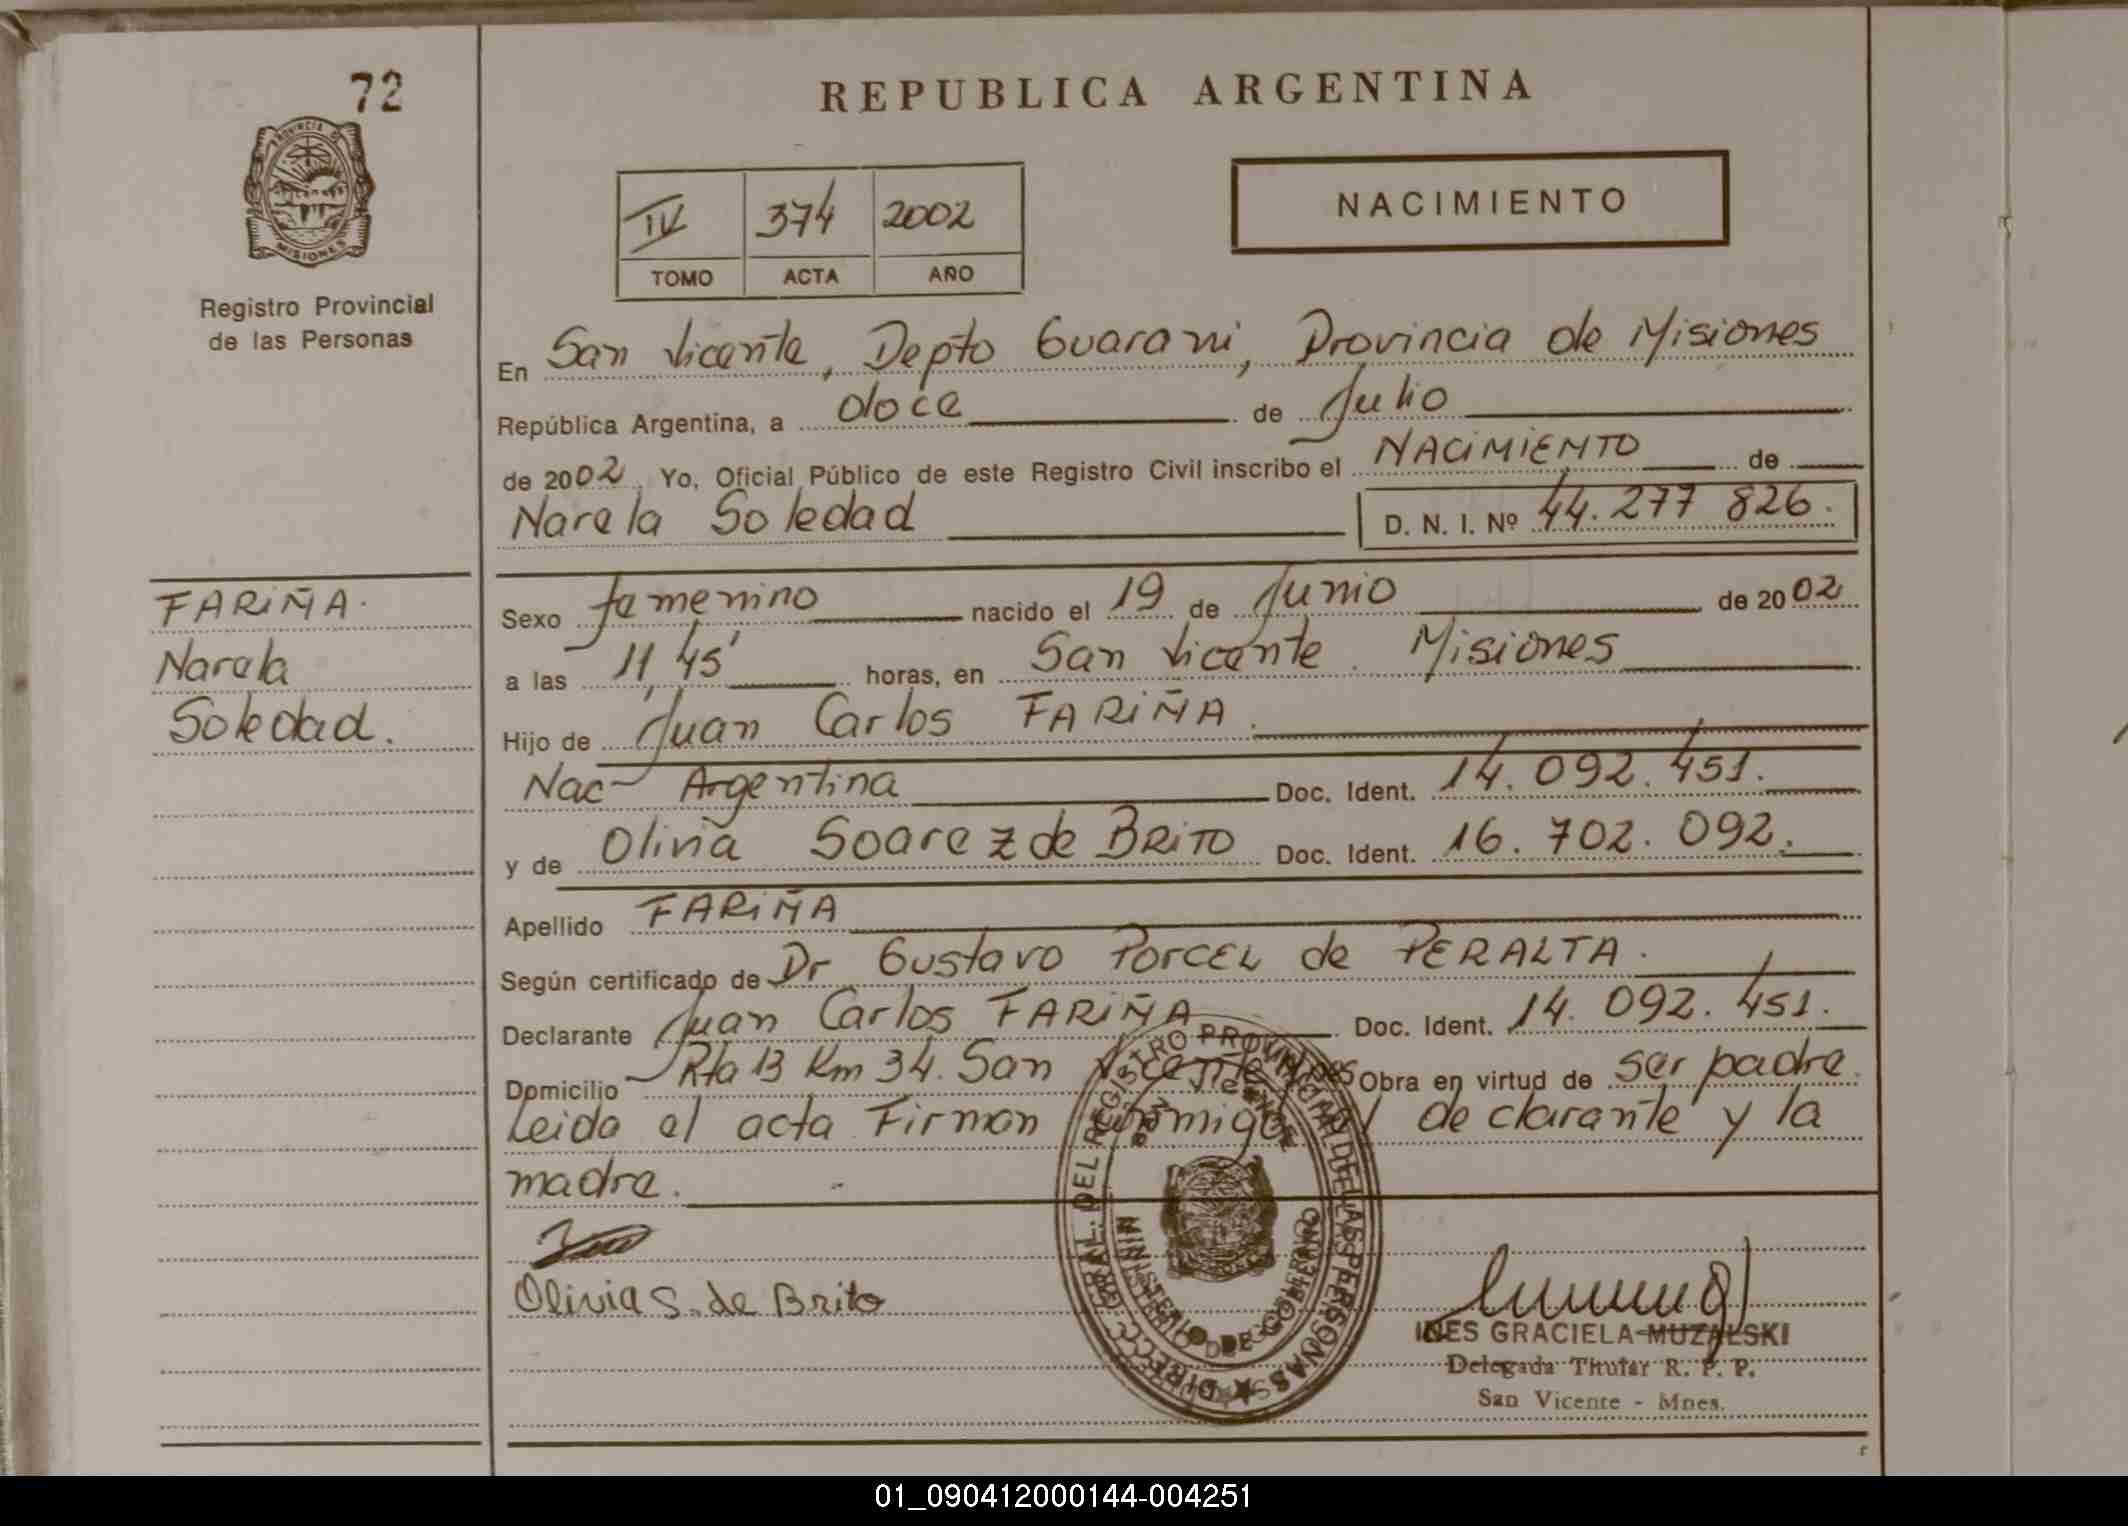 72
PROVINCIA DE
MISIONES
Registro Provincial
de las Personas
REPUBLICA ARGENTINA
IV 374 2002
TOMO ACTA AÑO
NACIMIENTO
En San Vicente, Depto Guarani, Provincia de Misiones
República Argentina, a doce de Julio
de 2002. Yo, Oficial Público de este Registro Civil inscribo el NACIMIENTO de
Narela Soledad D. N. I. Nº 44.277 826.
FARIÑA.
Narela
Soledad.
Sexo femenino nacido el 19 de Junio de 2002
a las 11,45' horas, en San Vicente. Misiones
Hijo de Juan Carlos FARIÑA.
Nac- Argentina Doc. Ident. 14.092.451.
y de Olivia Soarez de BRITO Doc. Ident. 16.702.092.
Apellido FARIÑA
Según certificado de Dr Gustavo PORCEL de PERALTA.
Declarante Juan Carlos FARIÑA Doc. Ident. 14.092.451.
Domicilio Rta 13 Km 34. San Vicente Mnes Obra en virtud de ser padre.
Leida el acta Firman conmigo el declarante y la
madre.
Olivia S. de Brito
DIRECC. GRAL. DEL REGISTRO PROVINCIAL DE LAS PERSONAS
MINISTERIO DE GOBIERNO
INES GRACIELA MUZALSKI
Delegada Titular R. P. P.
San Vicente - Mnes.
01_090412000144-004251